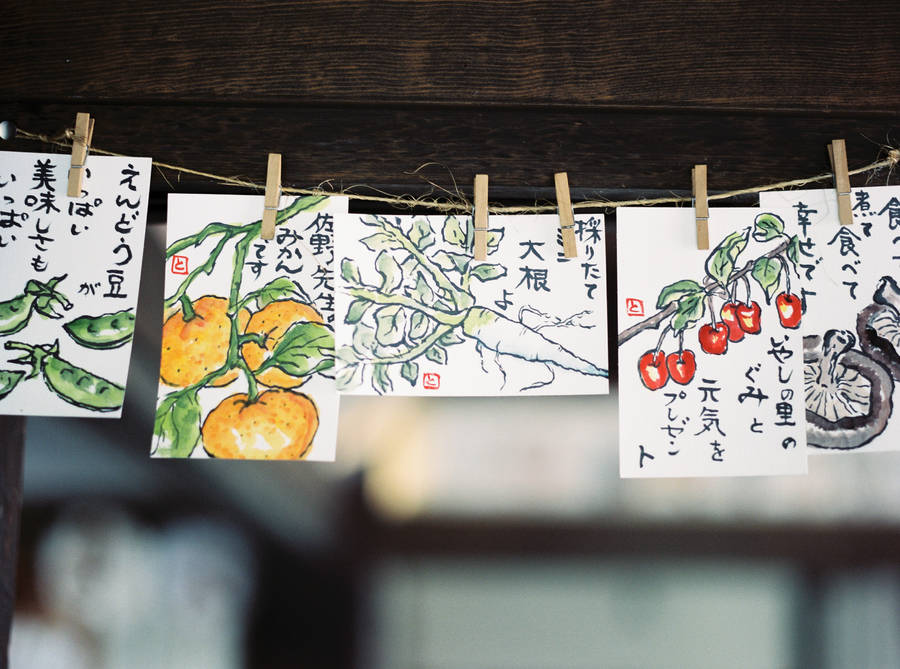 えんどう豆
が
いっぱい
美味しさも
いっぱい
佐野先生
みかん
です
と
採りたて
大根
よ
と
いやしの里の
ぐみと
元気を
プレゼント
と
食べ
煮て
食べて
幸せです